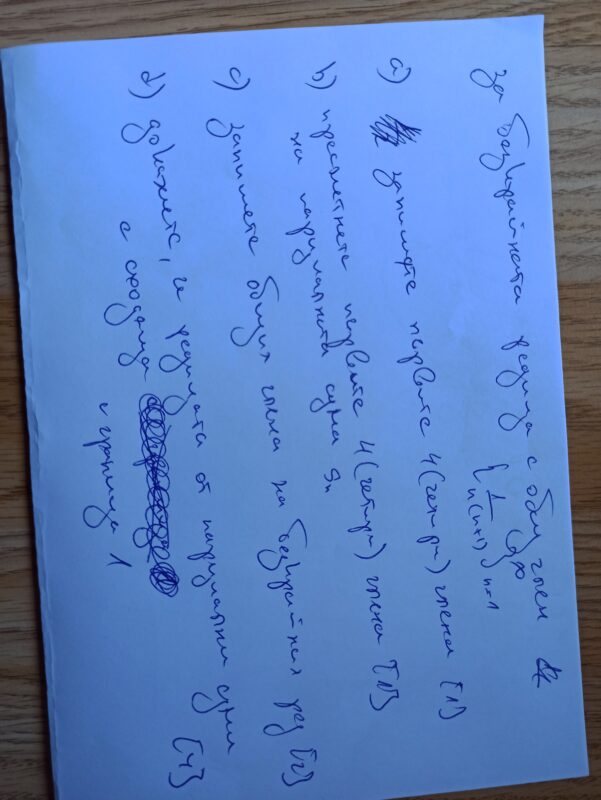 За безкрайната редица с общ член
{1/n(n+1)}∞n=1
a) запишете първите 4(четири) члена [1]
b) пресметнете първите 4(четири) члена [1]
на парциалната сума Sn
c) запишете общия член на безкрайния ред [2]
d) докажете, че редицата от парциални суми [4]
е сходяща
с граница 1